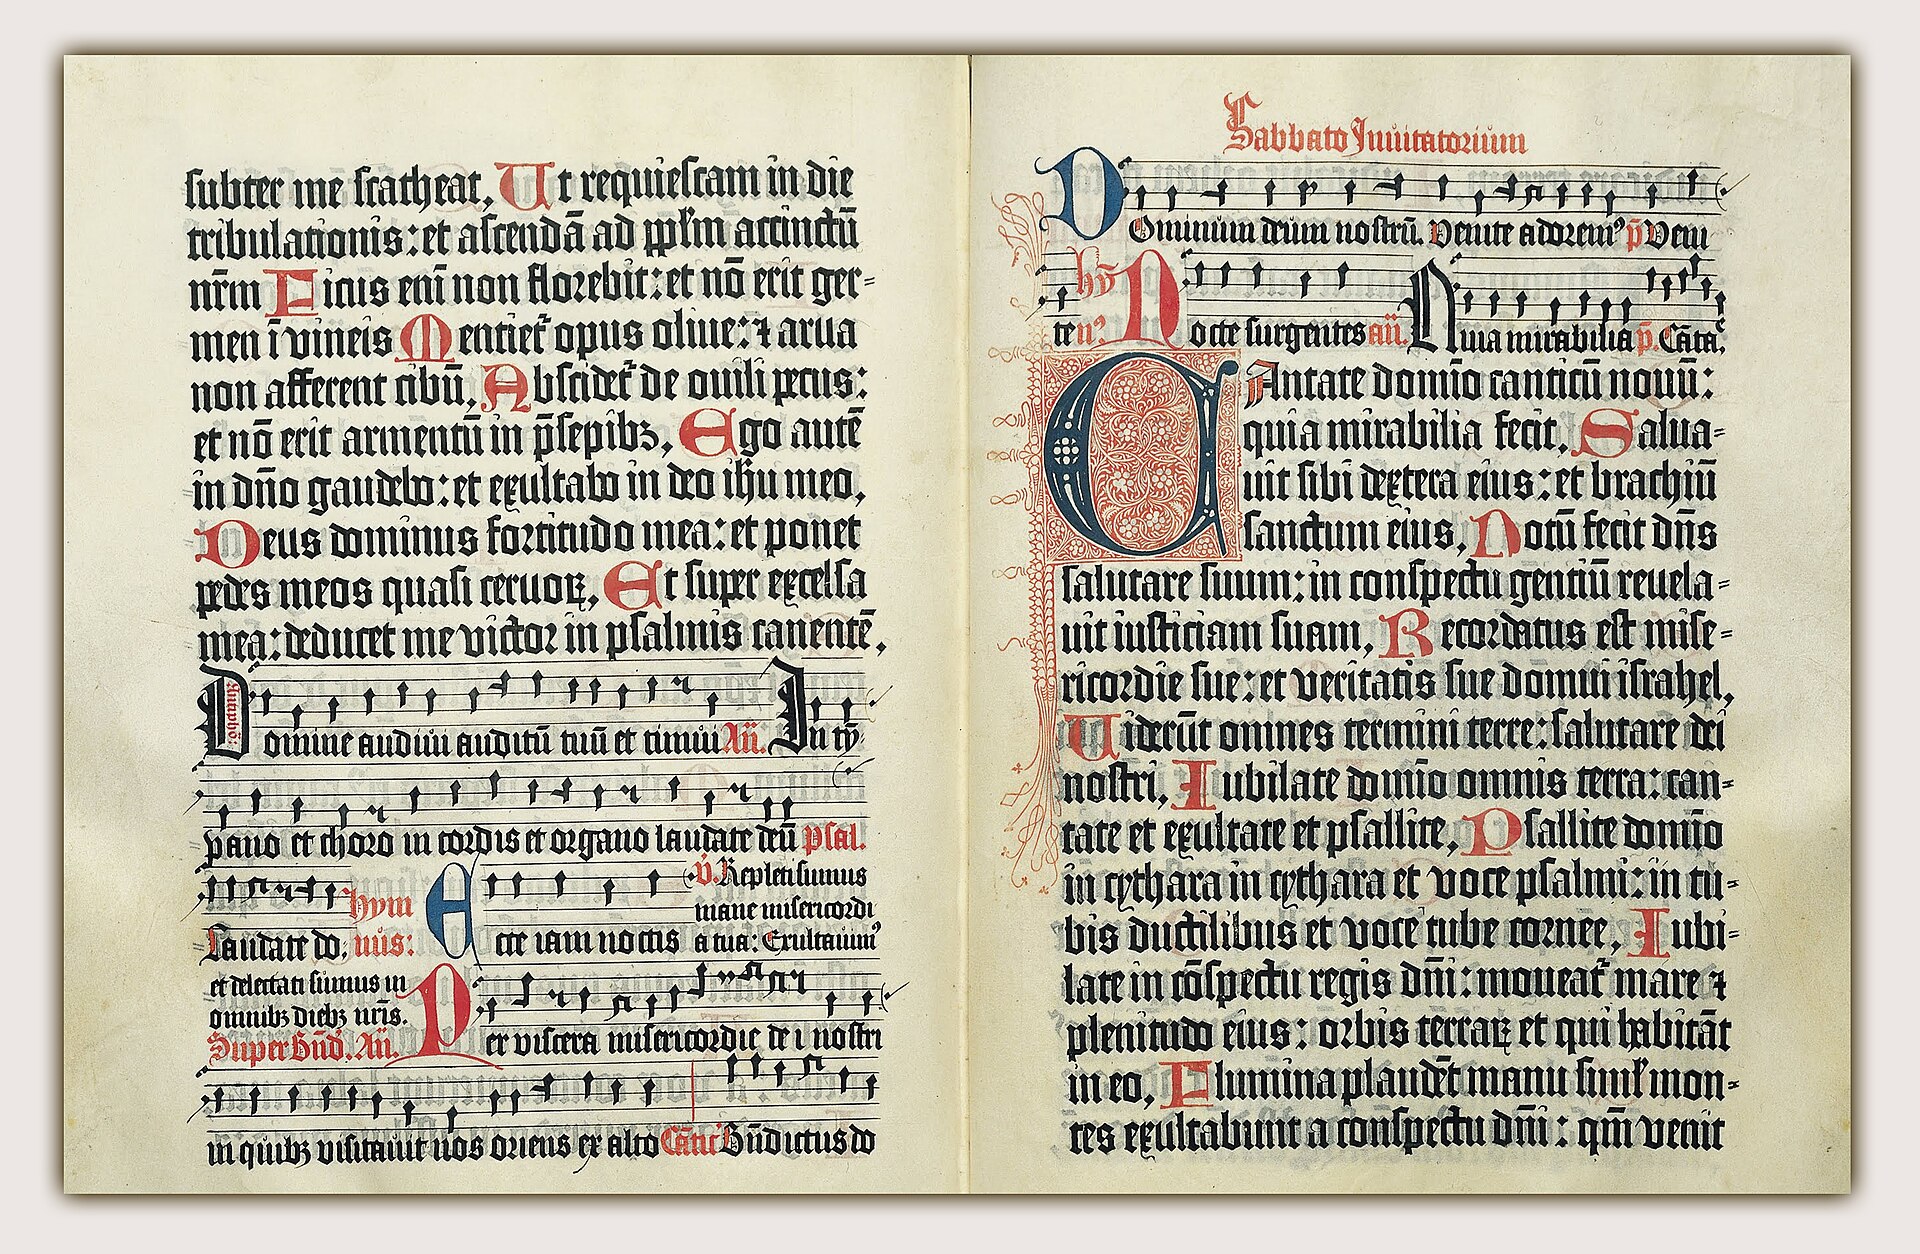 subter me scatheat, Ut requiescam in die
tribulationis: et ascendā ad pplm̄ accinctū
nr̄m Ficus eni non florebit: et nō erit ger=
men ī vineis Mentiet᷑ opus oliue: ⁊ arua
non afferent cibū, Abscidet᷑ de ouili pecus:
et nō erit armentū in p̄sepibꝫ, Ego autē
in dn̄o gaudebo: et exultabo in deo ih̄u meo,
Deus dominus fortitudo mea: et ponet
pedes meos quasi ceruoꝝ, Et super excelsa
mea: deducet me victor in psalmis canentē,
Domine audiui auditū tuū et timui An̄. In ty-
pano et choro in cordis et organo laudate deū psal.
Laudate do. hymnus: Ecce iam noctis
v̄. Repleti sumus
mane misericordi
a tua: Exultauim᷒
et delectati sumus in
omnibꝫ diebꝫ nr̄is.
Super Bn̄d. An̄. Per viscera misericordie de i nostri
in quibꝫ visitauit nos oriens ex alto Cātic᷒ Bn̄dictus do
Sabbato Inuitatorium
Dominum deum nostrū. Venite adorem᷒ p̄ Veni
te hȳ Nocte surgentes an̄. Quia mirabilia p̄. Cāta,
CAntate domīo canticū nouū:
quia mirabilia fecit, Salua=
uit sibi dextera eius: et brachiū
sanctum eius, Notū fecit dn̄s
salutare suum: in conspectu gentiū reuela=
uit iusticiam suam, Recordatus est mise=
ricordie sue: et veritatis sue domui israhel,
Uiderūt omnes termini terre: salutare dei
nostri, Iubilate domīo omnis terra: can=
tate et exultate et psallite, Psallite domīo
in cythara in cythara et voce psalmi: in tu=
bis ductilibus et voce tube cornee, Iubi=
late in cōspectu regis dn̄i: moueat᷑ mare ⁊
plenitudo eius: orbis terraꝝ et qui habitāt
in eo, Flumina plaudēt manu simul᷒ mon=
tes exultabunt a conspectu dn̄i: qm̄ venit